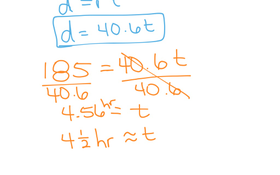 d = rt
d = 40.6t
185 = 40.6t
40.6 40.6
4.56 hr = t
4 1/2 hr ≈ t